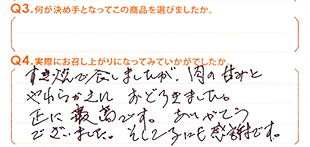 Q3.何が決め手となってこの商品を選びましたか。
Q4.実際にお召し上がりになってみていかがでしたか。
すき焼で食しましたが、肉の甘みと
やわらかさに おどろきました。
正に最高です。ありがとう
ございました。そして子にも感謝です。